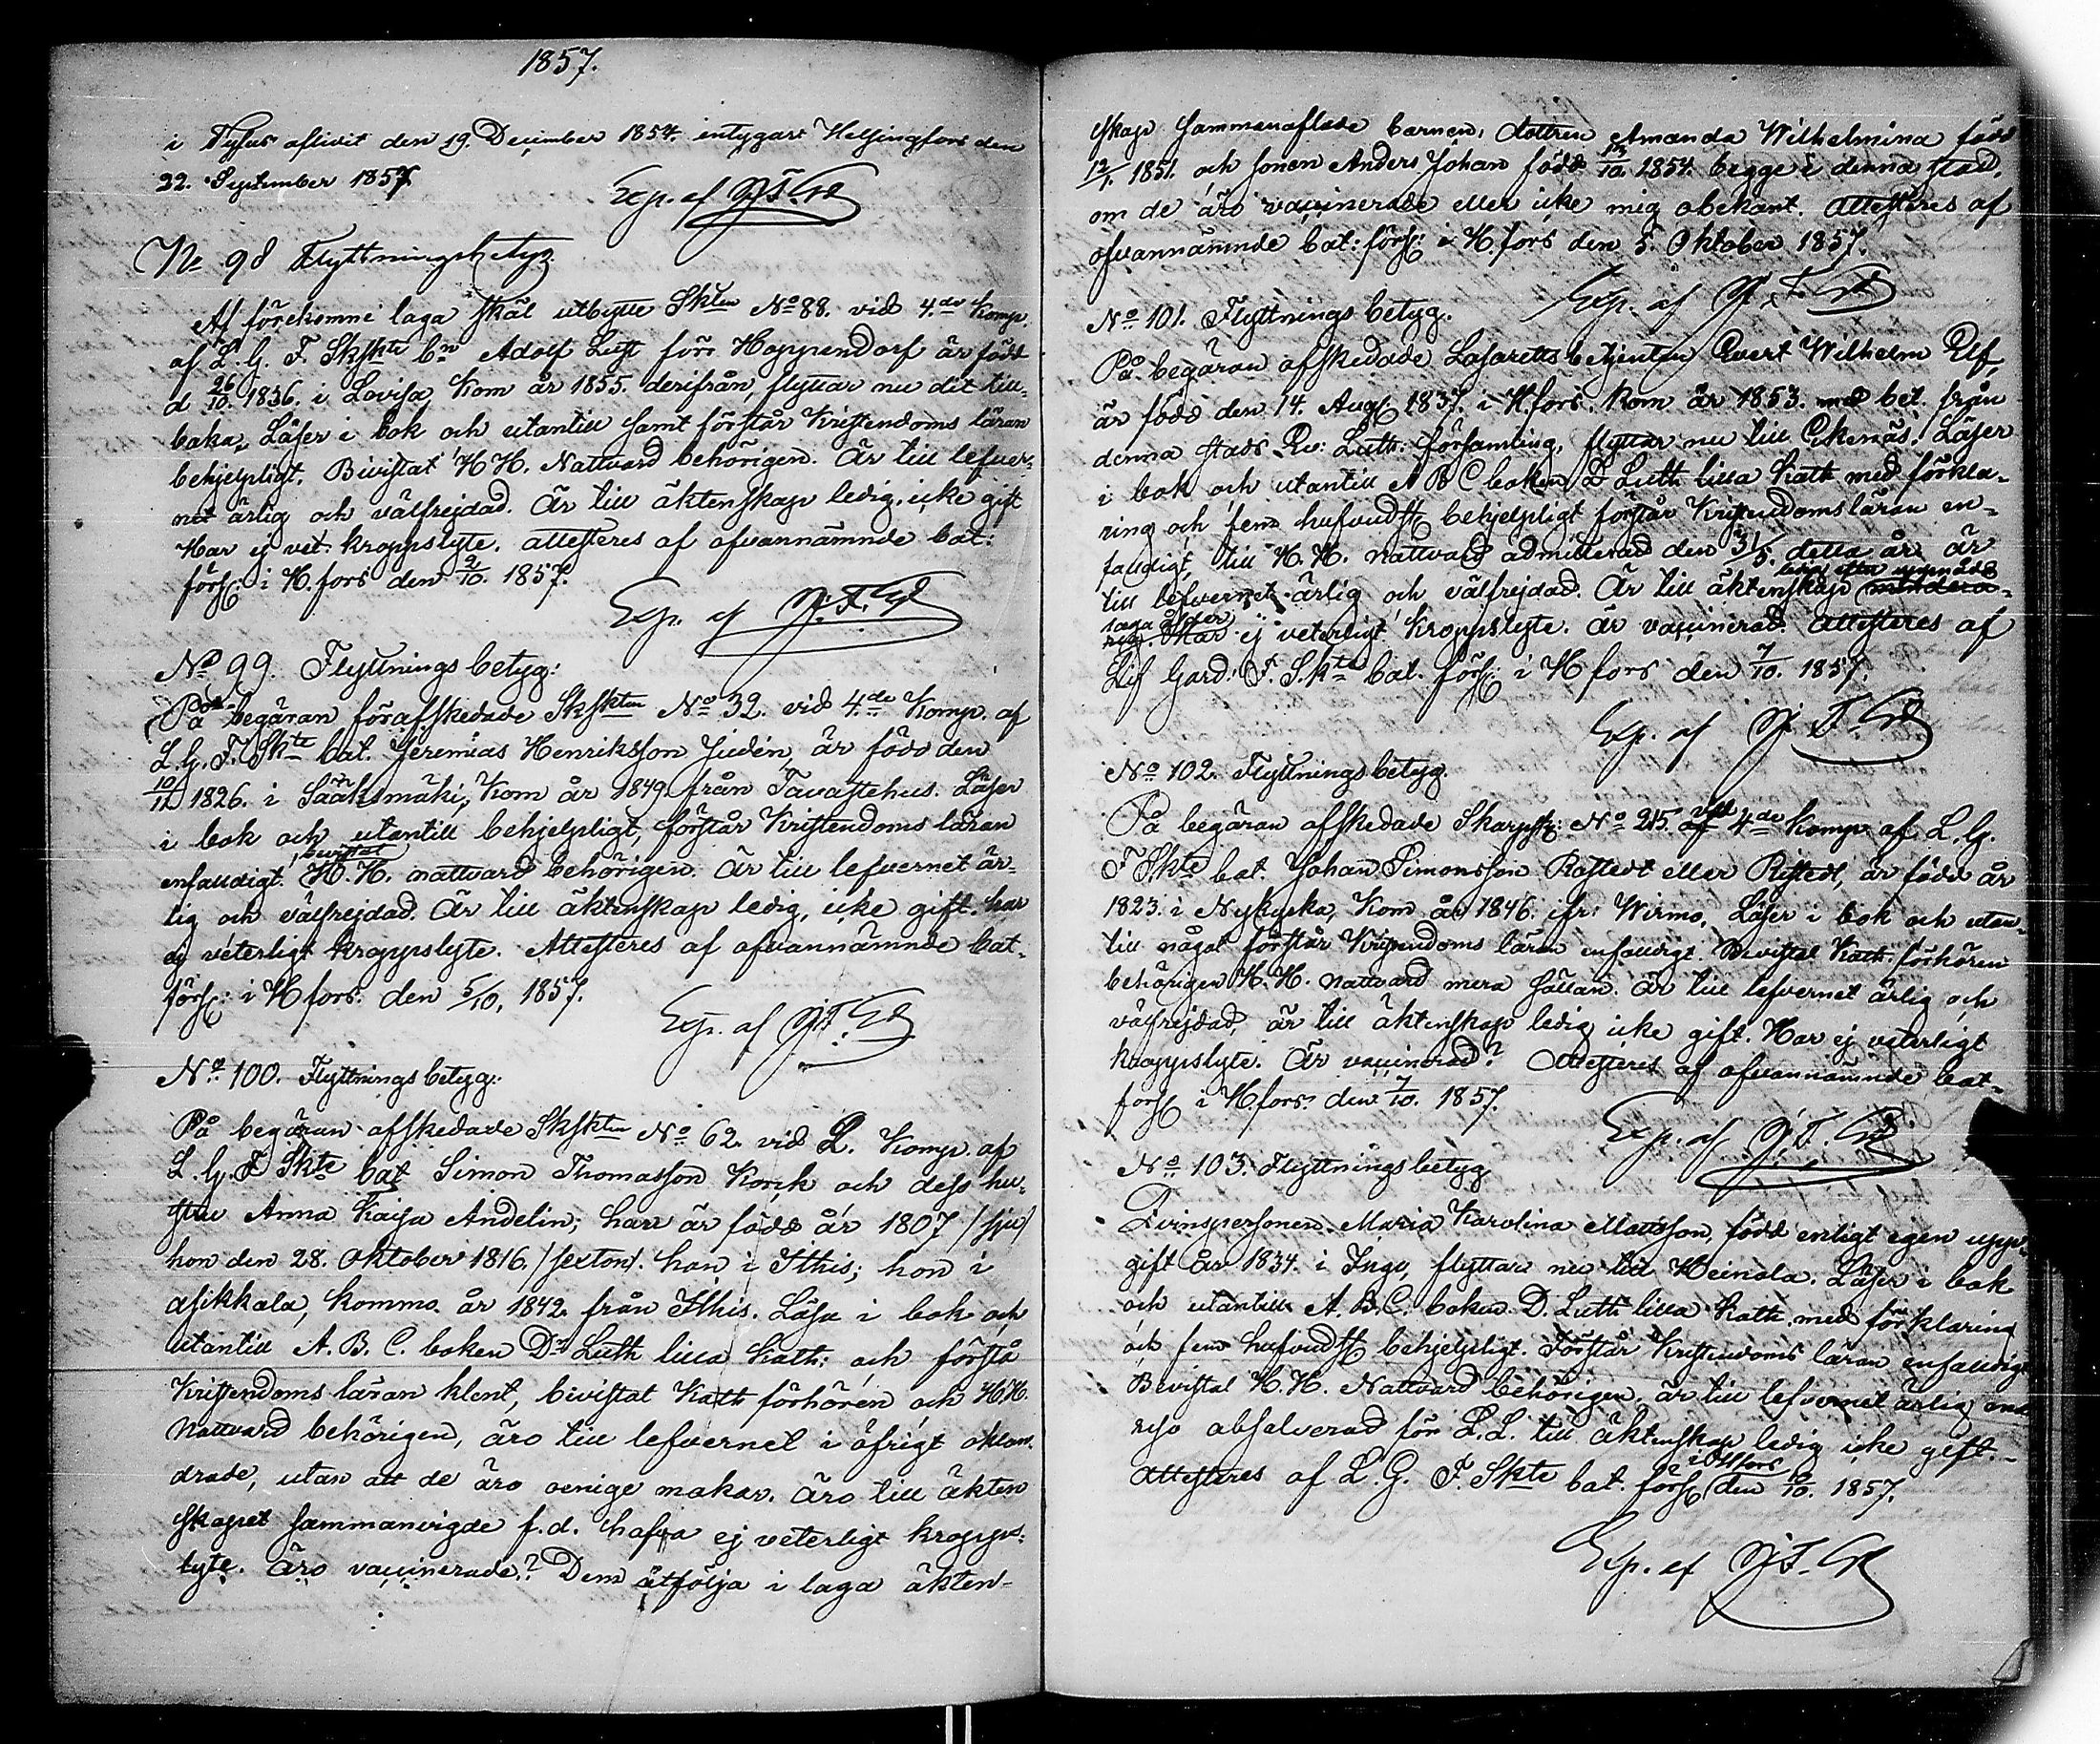 1857.
i Tyfus aflidit den 19. December 1854. intygart Helsingfors den
22. September 1857
Exp. af
No 98 Flyttningsbetyg.
Af förekomne laga skäl utbytte Skten No 88. vid 4.de Komp.
af L. G. F. Skskte bn Adolf Luft förr Hoppendorf är född
d 26/10. 1836. i Lovisa, Kom år 1855. derifrån, flyttar nu dit till-
baka, Läser i bok och utantill samt förstår Kristendoms läran
behjelpligt. Bivistat H H. Nattvard behörigen. Är till lefver-
net ärlig och välfrejdad. Är till äktenskap ledig, icke gift
Har ej vet. kroppslyte. attesteres af ofvannämnde bat:
förs: i H.fors den 2/10. 1857.
Exp. af
No 99. Flyttnings betyg:
På begäran förafskedade Skskten No 32. vid 4.de Komp. af
L. G. F. Skte bat. Jeremias Henriksson Judén, är född den
10/12 1826. i Sääksmäki, Kom år 1849 från Tavastehus. Läser
i bok och utantill behjelpligt, förstår Kristendoms läran
bevistat
enfaldigt. H. H. nattvard behörigen. Är till lefvernet är-
lig och välfrejdad. Är till äktenskap ledig, icke gift. har
ej veterligt kroppslyte. Attesteres af ofvannämnde bat-
förs: i H fors. den 5/10. 1857.
Exp. af
No 100. Flyttnings betyg:
På begäran afskedade Skskten No 62. vid L. Komp. af
L. G. F Skte bat Simon Thomasson Korck och dess hu-
stru Anna Kaisa Andelin; han är född år 1807 /sju/
hon den 28. Oktober 1816. /sexton/. han i Itthis; hon i
Asikkala, Kommo år 1842. från Itthis. Läsa i bok och
utantill A. B. C. boken Dr Luth lilla Kath: och förstå
Kristendoms läran klent, bivistat Kath förhören och H H.
Nattvard behörigen, äro till lefvernet i öfrigt oklan-
drade, utan att de äro oenige makar. Äro till äkten
skapet sammanvigde f. d. hafva ej veterligt kropps-
lyte. Äro vaccinerade? Dem åtfölja i laga äkten-
skap sammanaflade barnen, dottren Amanda Wilhelmina född
12/1. 1851. och sonen Anders Johan född /10. 1854. begge i denna stad,
om de äro vaccinerade eller icke mig obekant. Attesteres af
ofvannämnde bat: förs: i H.fors den 5. Oktober 1857.
Exp. af
No 101. Flyttnings betyg.
På begäran afskedade Lasarettsbetjenten Evert Wilhelm Elf,
är född den 14. Aug: 1837. i H.fors. Kom år 1853. med bet. från
denna stads Ev: Luth: församling, flyttar nu till Ekenäs. Läser
i bok och utantill A B C boken D Luth lilla Kath med förkla-
ring och fem hufvudst behjelpligt förstår Kristendomsläran en-
faldigt, till H. H. nattvard admitterad den 31/5. detta år är
ledig efter uppnådd
till lefvernet ärlig och välfrejdad. Är till äktenskap mindera-
laga ålder
rig. Har ej veterligt kroppslyte. Är vaccinerad. Attesteres af
Lif Gard: F. S.kte bat. förs: i H fors den 7/10. 1857.
Exp. af
No 102. Flyttnings betyg.
vid
På begäran afskedade Skarpsk: No 215. af 4de Komp af L. G.
F Skte bat. Johan Simonsson Rastedt eller Ristedt, är född år
1823. i Nykyrka, Kom år 1846. ifr: Wirmo. Läser i bok och utan-
till något förstår Kristendoms läran enfaldigt. Bevistat Kath: förhören
behörigen H. H. nattvard mera sällan. Är till lefvernet ärlig och
välfrejdad, är till äktenskap ledig icke gift. Har ej veterligt
kroppslyte. Är vaccinerad? Attesteres af ofvannämnde bat-
förs i H.fors. den 7/10. 1857.
Exp. af
No 103. Flyttnings betyg
Qvinspersonen Maria Karolina Mattsson, född enligt egen upp-
gift år 1834. i Ingo, flyttar nu till Heinola. Läser i bok
och utantill A. B. C. boken D. Luth lilla Kath. med förklaring
och fem hufvudst behjelpligt. Förstår Kristendoms läran enfaldigt
Bevistat H. H. Nattvard behörigen, är till lefvernet ärlig
absolverad för L. L. till äktenskap ledig icke gift.-
i H fors
Attesteres af L. G. F. Skte bat. förs den /10. 1857.
Exp. af